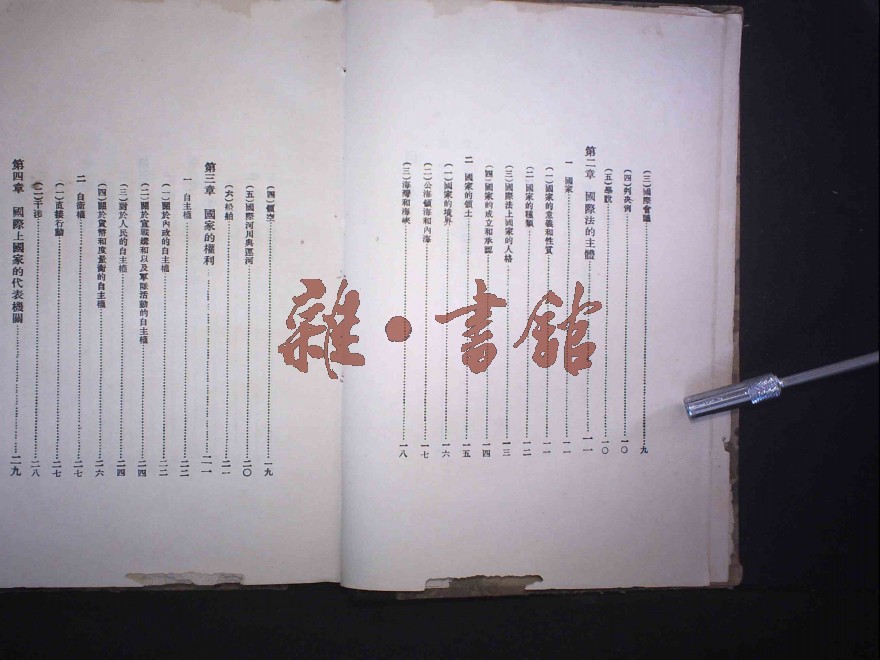 (三)國際會議……九
(四)判決例……一〇
(五)學說……一〇
第二章 國際法的主體……一一
一 國家……一一
(一)國家的意義和性質……一一
(二)國家的種類……一二
(三)國際法上國家的人格……一三
(四)國家的成立和承認……一四
二 國家的領土……一五
(一)國家的境界……一六
(二)公海領海和內海……一七
(三)海灣和海峽……一八
(四)領空……一九
(五)國際河川與運河……二〇
(六)船舶……二一
第三章 國家的權利……二一
一 自主權……二二
(一)關於內政的自主權……二二
(二)關於宣戰媾和以及軍隊活動的自主權……二四
(三)對於人民的自主權……二四
(四)關於貨幣和度量衡的自主權……二六
二 自衛權……二七
(一)直接行動……二七
(二)干涉……二八
第四章 國際上國家的代表機關……二九
雜·書館